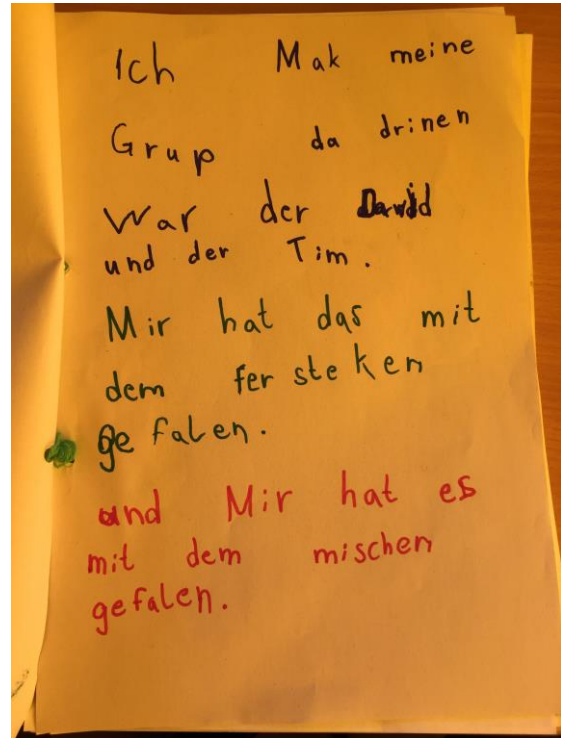 Ich Mak meine
Grup da drinen
War der Dawid
und der Tim.
Mir hat das mit
dem fer steken
ge falen.
und Mir hat es
mit dem mischen
gefalen.